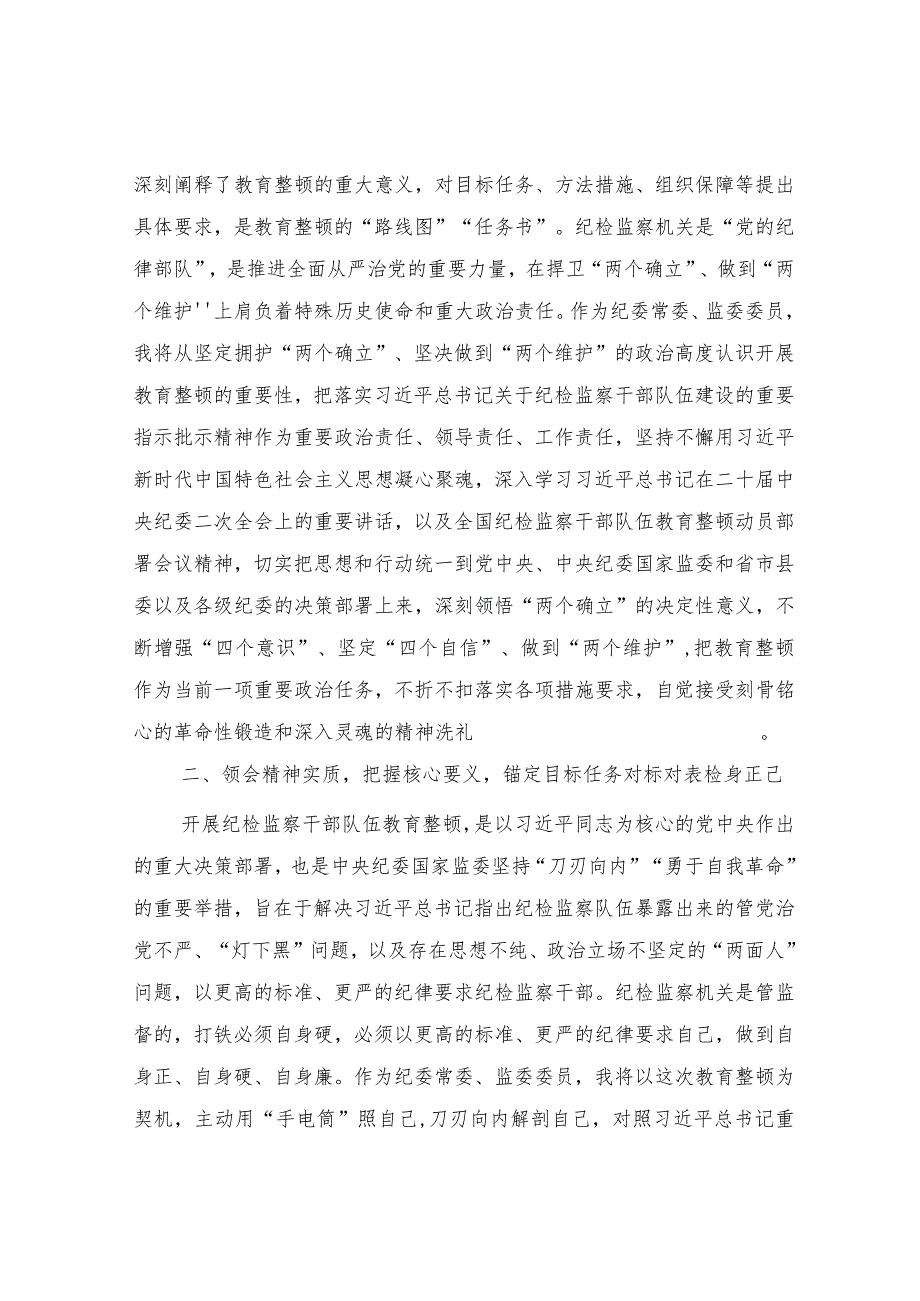 深刻阐释了教育整顿的重大意义，对目标任务、方法措施、组织保障等提出
具体要求，是教育整顿的“路线图”“任务书”。纪检监察机关是“党的纪
律部队”，是推进全面从严治党的重要力量，在捍卫“两个确立”、做到“两
个维护''上肩负着特殊历史使命和重大政治责任。作为纪委常委、监委委员，
我将从坚定拥护“两个确立”、坚决做到“两个维护”的政治高度认识开展
教育整顿的重要性，把落实习近平总书记关于纪检监察干部队伍建设的重要
指示批示精神作为重要政治责任、领导责任、工作责任，坚持不懈用习近平
新时代中国特色社会主义思想凝心聚魂，深入学习习近平总书记在二十届中
央纪委二次全会上的重要讲话，以及全国纪检监察干部队伍教育整顿动员部
署会议精神，切实把思想和行动统一到党中央、中央纪委国家监委和省市县
委以及各级纪委的决策部署上来，深刻领悟“两个确立”的决定性意义，不
断增强“四个意识”、坚定“四个自信”、做到“两个维护”,把教育整顿
作为当前一项重要政治任务，不折不扣落实各项措施要求，自觉接受刻骨铭
心的革命性锻造和深入灵魂的精神洗礼。
二、领会精神实质，把握核心要义，锚定目标任务对标对表检身正己
开展纪检监察干部队伍教育整顿,是以习近平同志为核心的党中央作出
的重大决策部署，也是中央纪委国家监委坚持“刀刃向内”“勇于自我革命”
的重要举措，旨在于解决习近平总书记指出纪检监察队伍暴露出来的管党治
党不严、“灯下黑”问题，以及存在思想不纯、政治立场不坚定的“两面人”
问题，以更高的标准、更严的纪律要求纪检监察干部。纪检监察机关是管监
督的，打铁必须自身硬，必须以更高的标准、更严的纪律要求自己，做到自
身正、自身硬、自身廉。作为纪委常委、监委委员，我将以这次教育整顿为
契机，主动用“手电筒”照自己,刀刃向内解剖自己，对照习近平总书记重